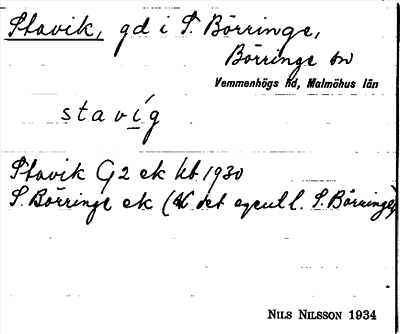 Stavik, gd i S. Börringe,
Börringe sn
Vemmenhögs hd, Malmöhus län
stavíg
Stavik G2 ek kb 1930
S. Börringe ek (det egentl. S. Börringe)
NILS NILSSON 1934